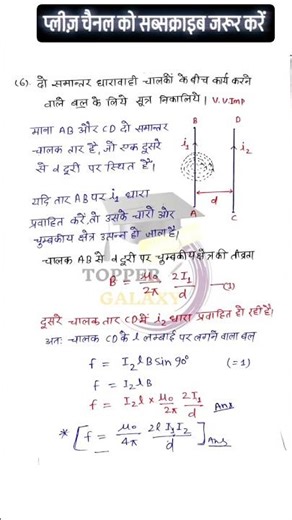 प्लीज़ चैनल को सब्सक्राइब जरूर करें
(6). दो समान्तर धारावाही चालकों के बीच कार्य करने
वाले बल के लिये सूत्र निकालिये। V.V.Imp
माना AB और CD दो समान्तर
चालक तार है, जो एक दूसरे
से d दूरी पर स्थित हैं।
B D
i₁ i₂
d
A C
यदि तार AB पर i₁ धारा
प्रवाहित करें, तो उसके चारो ओर
चुम्बकीय क्षेत्र उत्पन्न हो जाता है।
TOPPER
GALAXY
चालक AB से d दूरी पर चुम्बकीय क्षेत्र की तीव्रता
B = μ₀/2π 2I₁/d —(1)
दूसरे चालक तार CD में i₂ धारा प्रवाहित हो रही है।
अतः चालक CD के l लम्बाई पर लगने वाला बल
f = I₂lB sin 90° (=1)
f = I₂lB
f = I₂l × μ₀/2π 2I₁/d Ans
* [f = μ₀/4π 2l I₁I₂/d] Ans